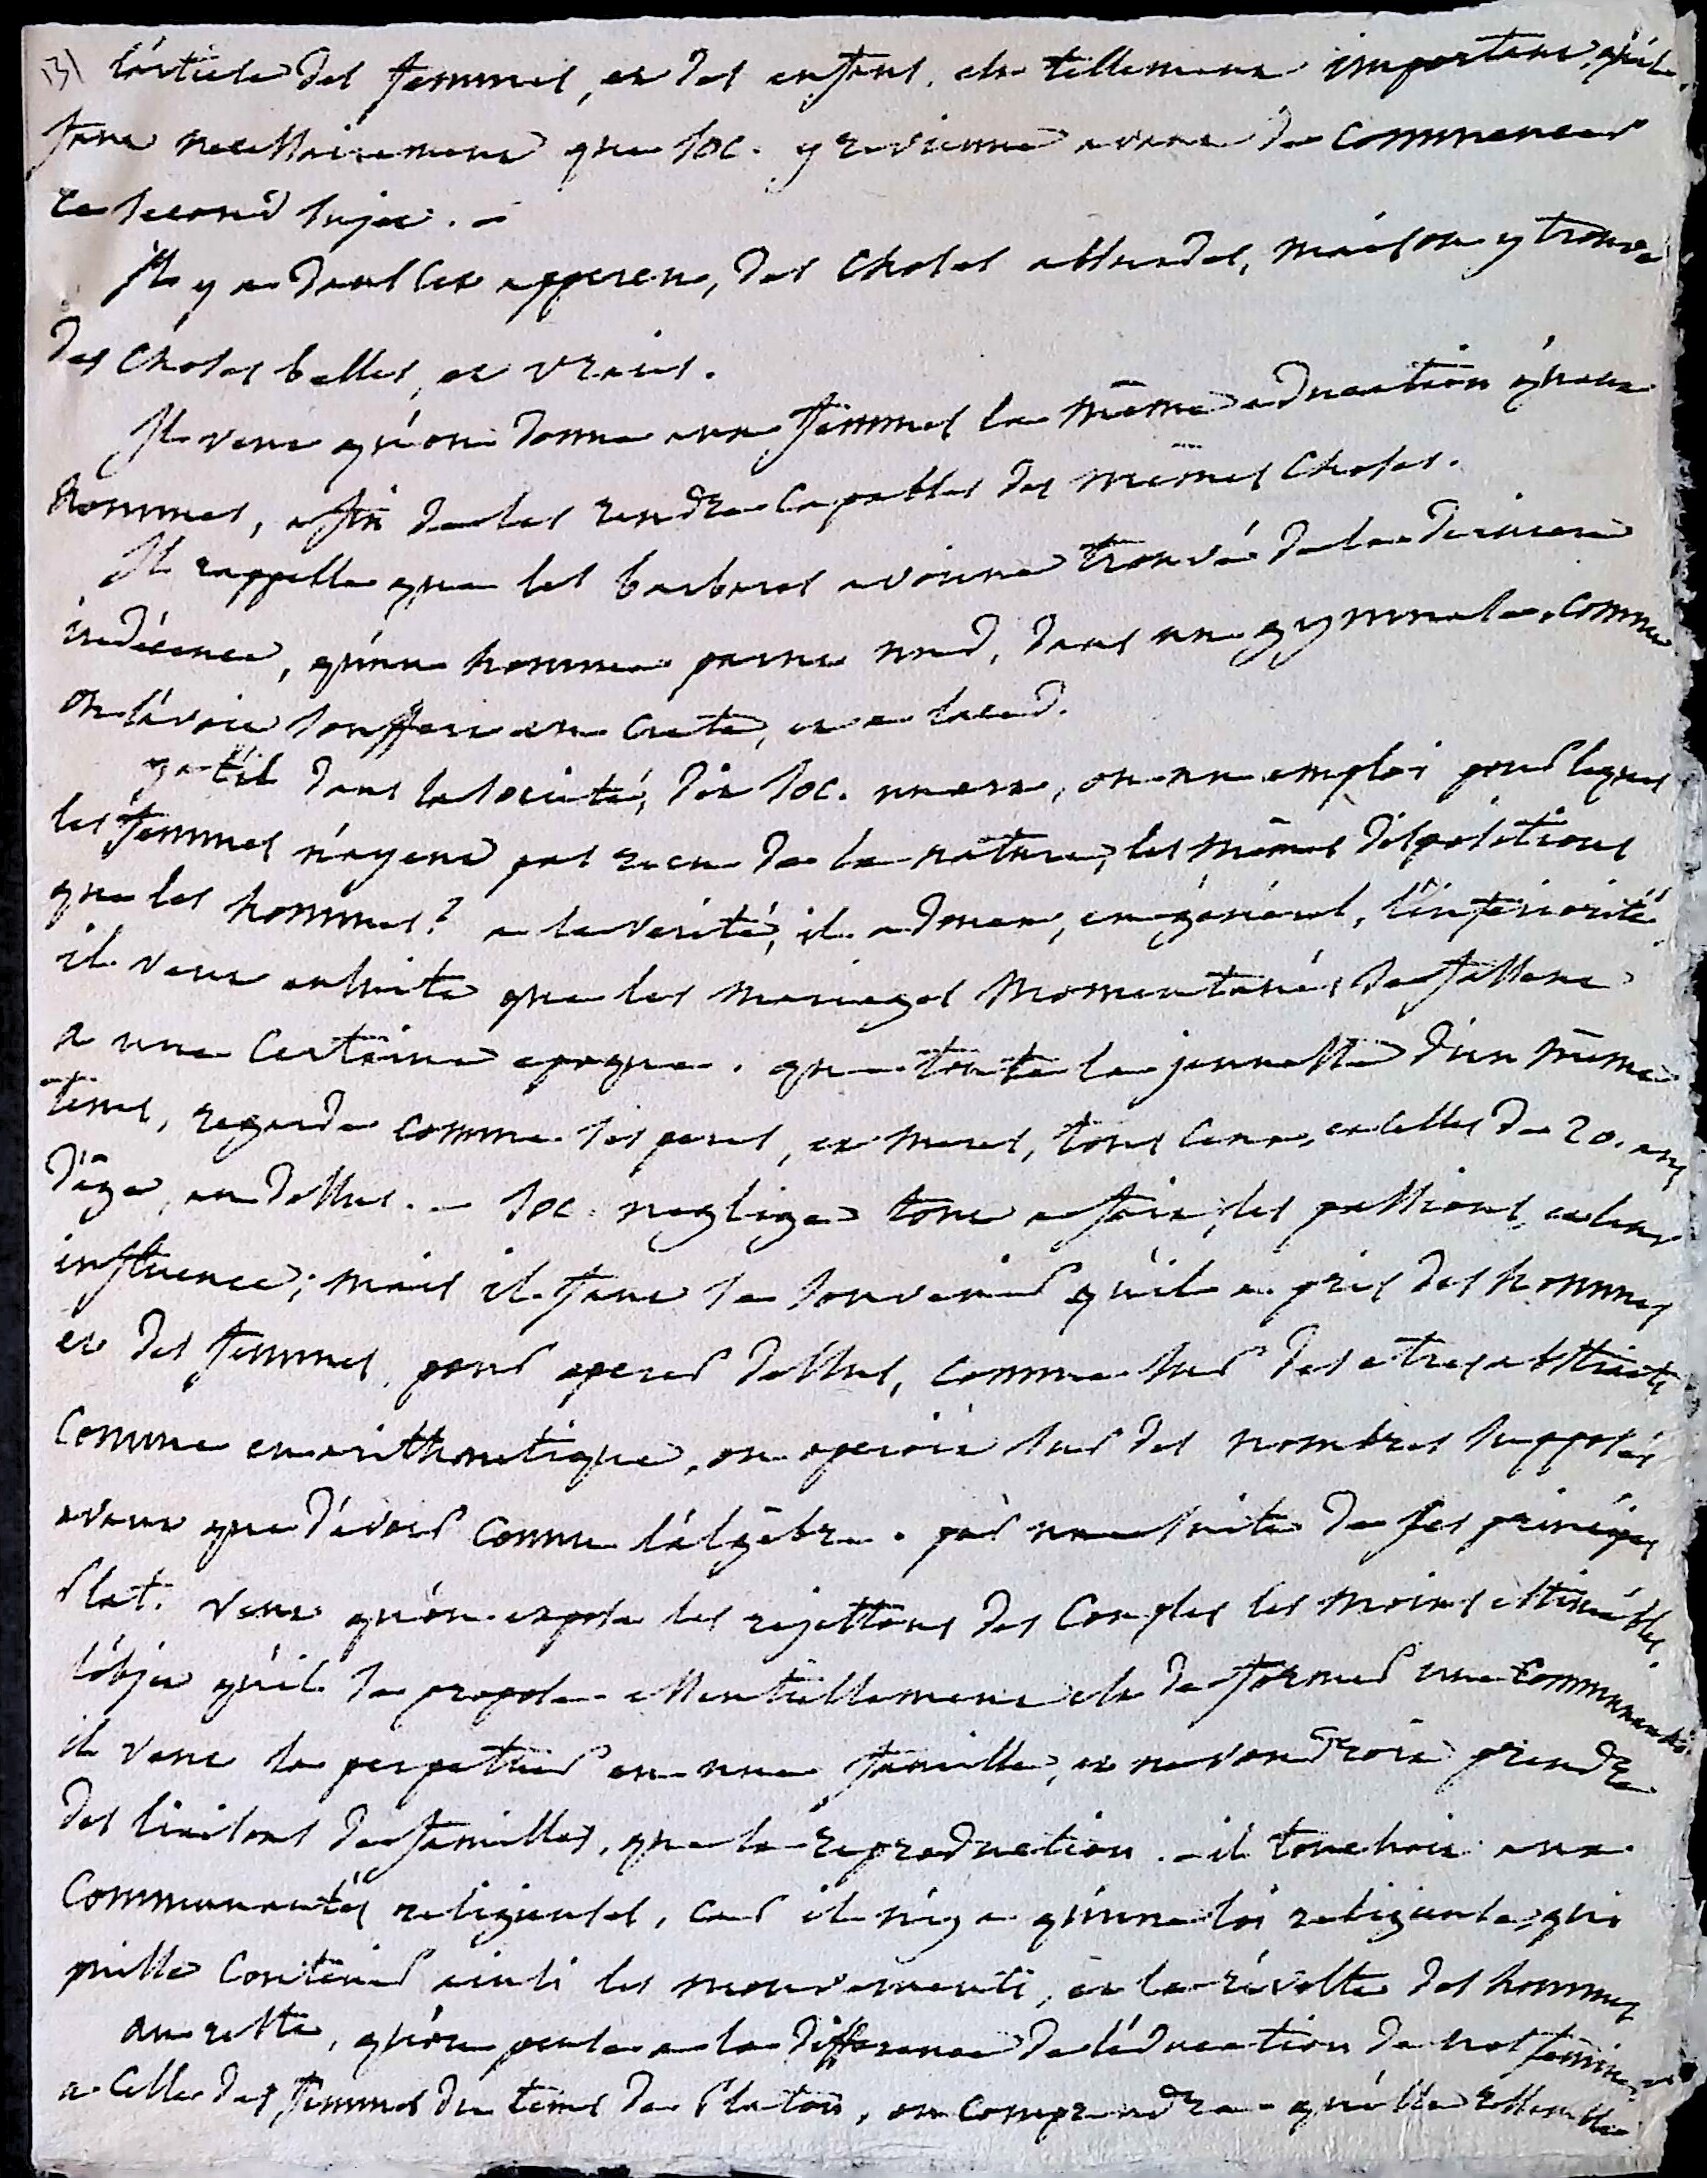 13) l'article des femmes, et des enfans, est tellement important, qu'il
faut necessairement que Soc. y revienne avant de commencer
ce second sujet. -
Il y a dans cet apperçu, des choses absurdes, mais on y trouve
des choses belles, et vraies.
Il veut qu'on donne aux femmes la même education qu'aux
hommes, afin de les rendre capables des mêmes choses.
Il rappelle que les barbares avoient trouvé de la derniere
indécence, qu'un homme parut nud, dans un gymnase, comme
on l'avoit souffert en Crete, et a Laced.
y a-t-il dans la societé, dit Soc. un art, ou un emploi pour lequel
les femmes n'ayent pas recu de la nature, les mêmes dispositions
que les hommes? a la verité, il admet, en général, l'infériorité.
il veut ensuite que les mariages momentanés se fassent
a une certaine epoque. que toute la jeunesse d'un même
tems, regarde comme ses peres, et meres, tous ceux, et celles de 20. ans
d'age, au dessus. - Soc. neglige tout a fait, les passions, et leur
influence; mais il faut se souvenir qu'il a pris des hommes
et des femmes, pour operer dessus, comme sur des etres abstraits
comme en arithmetique, on operoit sur des nombres supposés
avant que d'avoir connu l'algèbre. par une suite de ses principes
Plat. veut qu'on expose les rejettons des couples les moins estimables.
l'objet qu'il se propose essentiellement est de former une communauté.
il veut la perpetuer en une famille, et ne voudroit prendre
des liaisons de familles, que la reproduction. - il touchoit aux
communautés religieuses, car il n'y a qu'une loi religieuse, qui
puisse contenir ainsi les mouvements, et la révolte des hommes
au reste, qu'on pense a la difference de l'éducation de nos femmes,
a celle des femmes du tems de Platon, on comprendra qu'elle ressemble